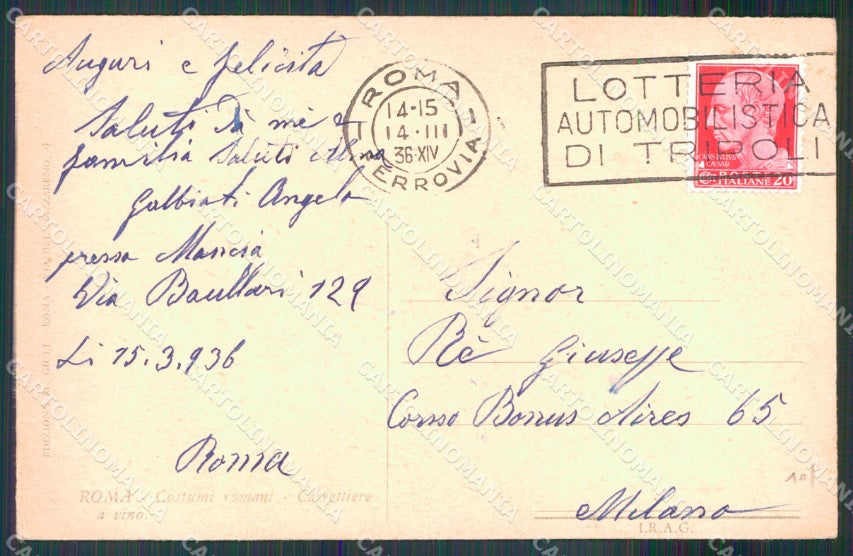 Auguri e felicita
Saluti da me e
familia Saluti Alma
Galbiati Angelo
presso Mancia
Via Baullari 129
Li 15.3.936
Roma
ROMA - Costumi romani - Carrettiere
a vino
ROMA
14-15
14·III
36·XIV
FERROVIA
LOTTERIA
AUTOMOBILISTICA
DI TRIPOLI
CAESAR
ITALIANE 20
Signor
Rè Giuseppe
Corso Bonus Aires 65
Milano
I.R.A.G.
CARTOLINOMANIA